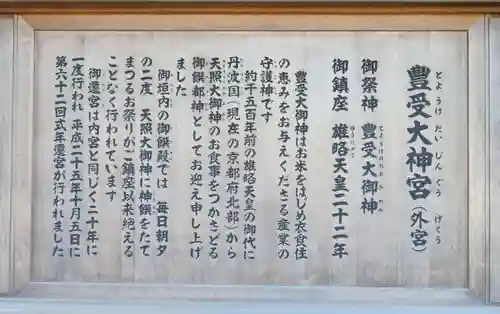 豊受大神宮（外宮）
御祭神　豊受大御神
御鎮座　雄略天皇二十二年
豊受大御神はお米をはじめ衣食住
の恵みをお与えくださる産業の
守護神です
約千五百年前の雄略天皇の御代に
丹波国（現在の京都府北部）から
天照大御神のお食事をつかさどる
御饌都神としてお迎え申し上げ
ました
御垣内の御饌殿では　毎日朝夕
の二度　天照大御神に神饌をたて
まつるお祭りがご鎮座以来絶える
ことなく行われています
御遷宮は内宮と同じく二十年に
一度行われ　平成二十五年十月五日に
第六十二回式年遷宮が行われました